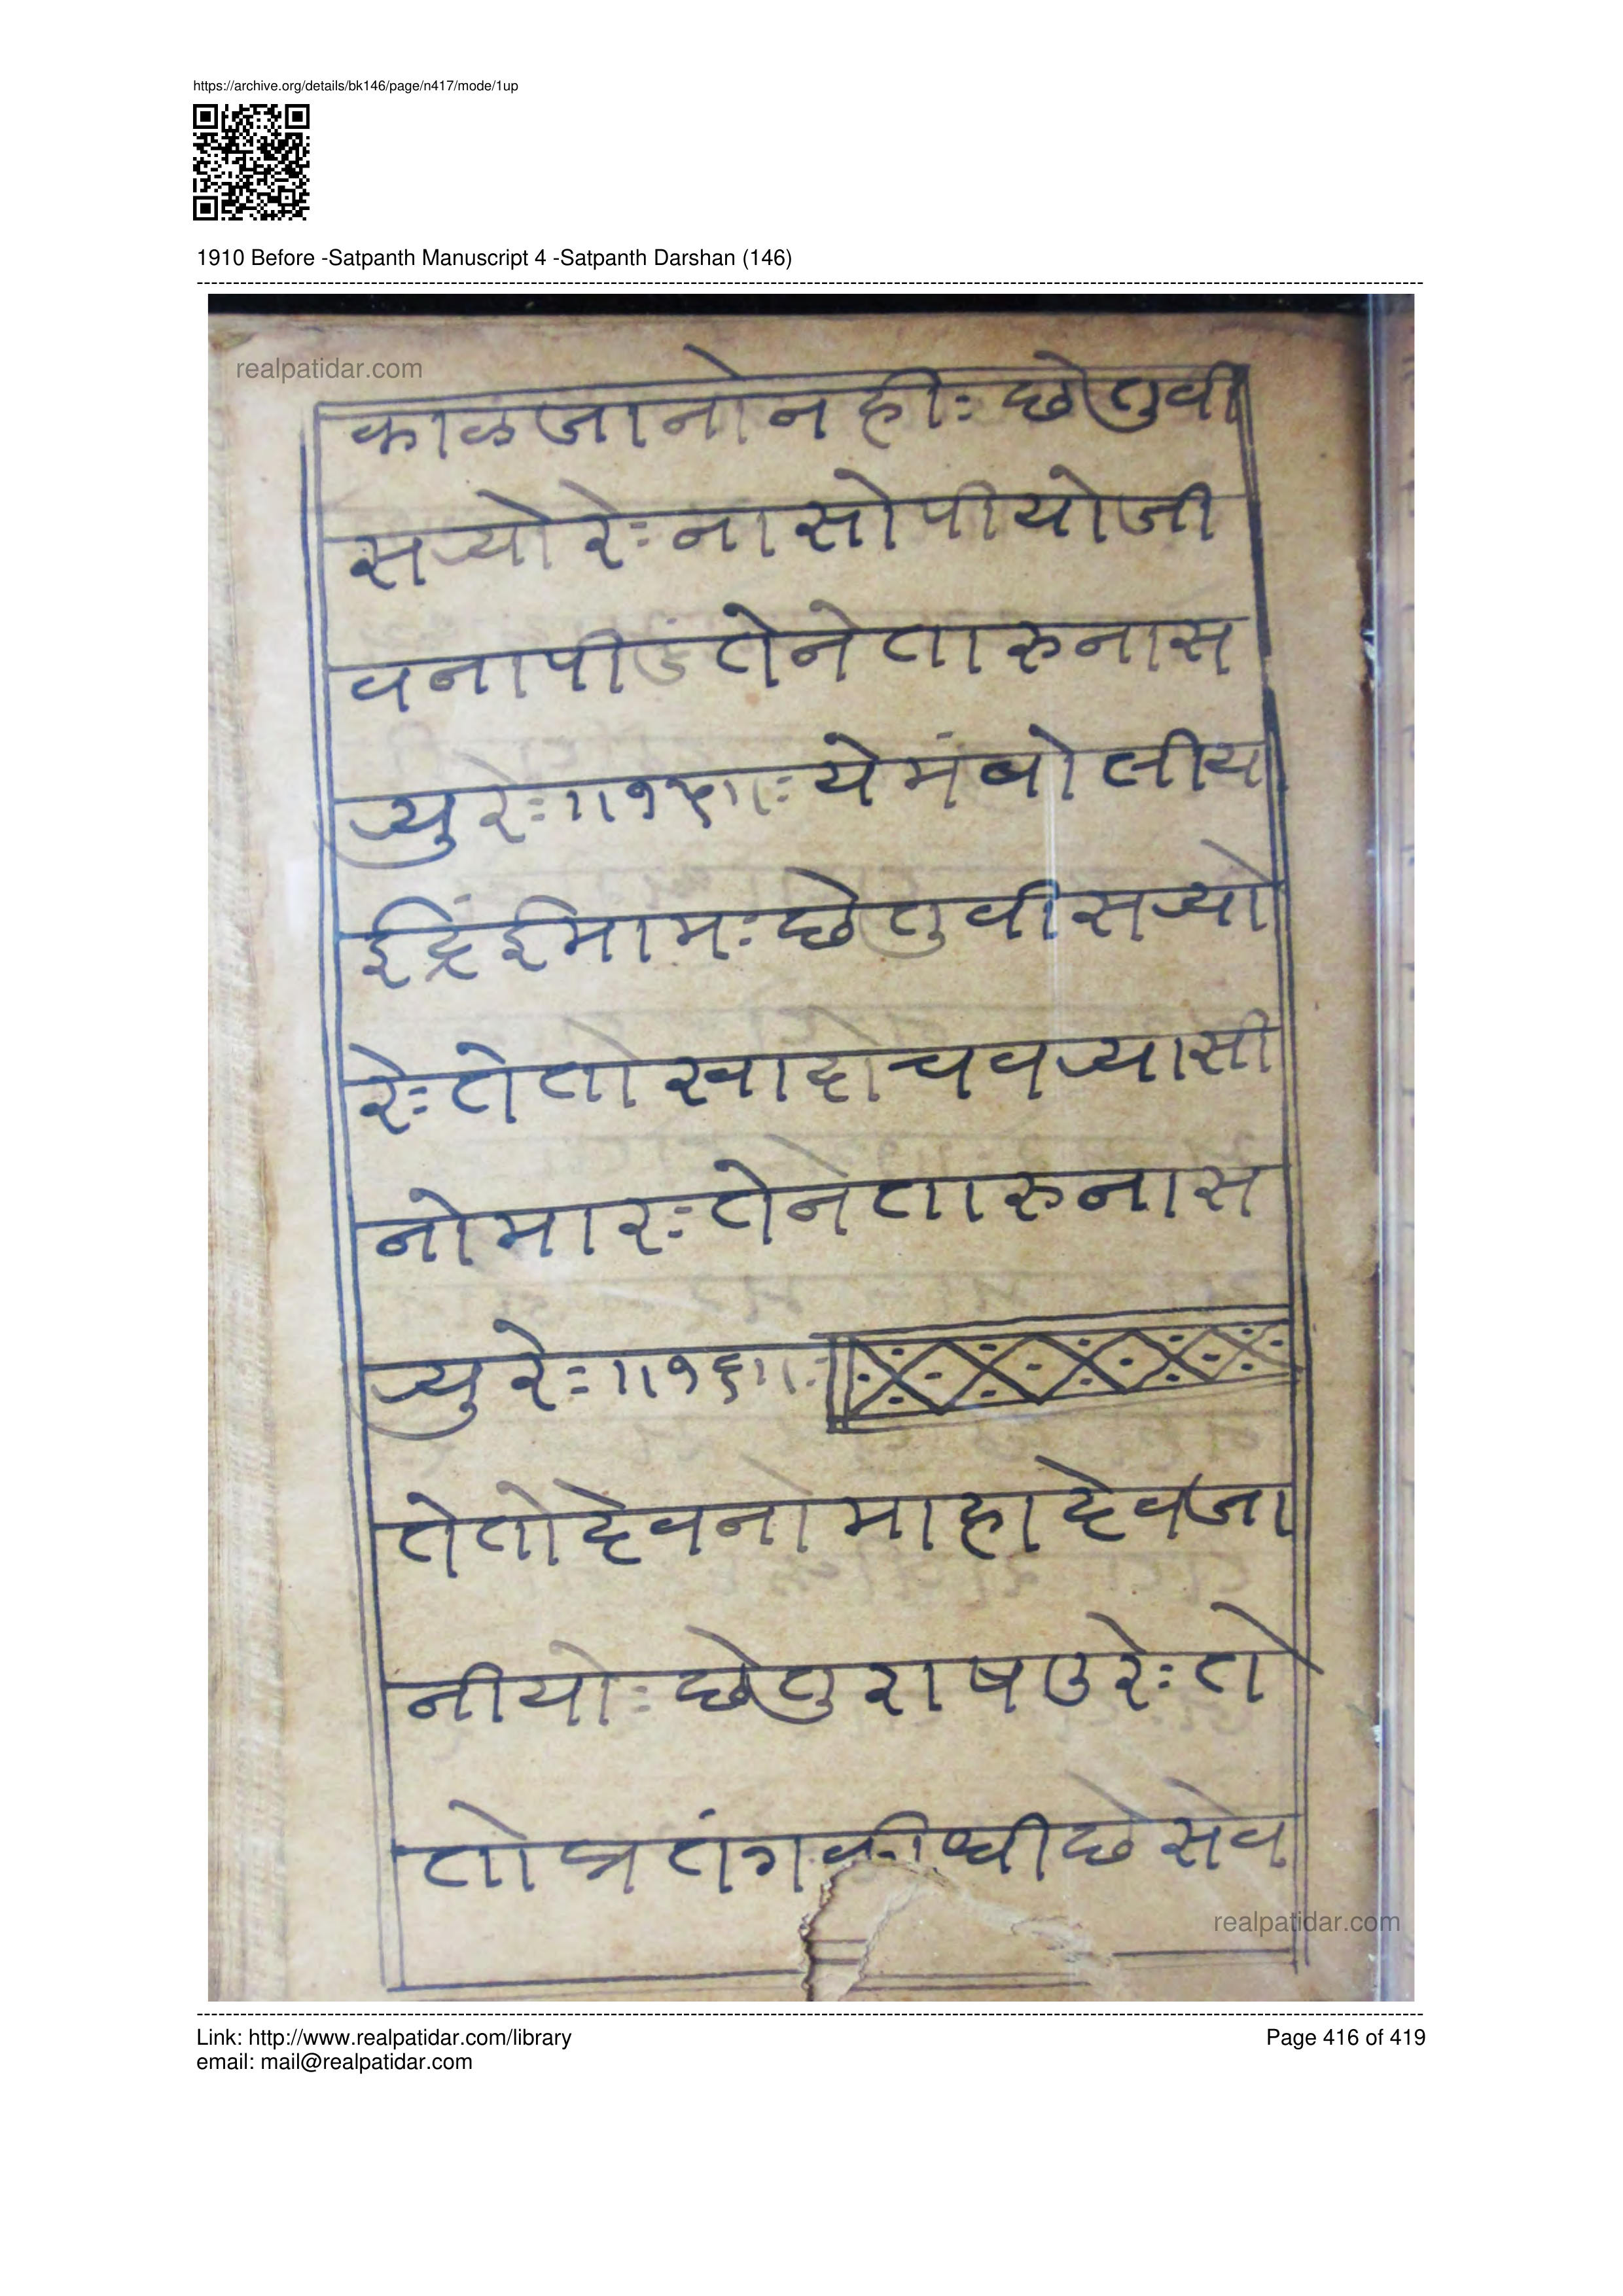 https://archive.org/details/bk146/page/n417/mode/1up
1910 Before -Satpanth Manuscript 4 -Satpanth Darshan (146)
realpatidar.com
काळजानोनही: छेतुवी
सर्‍योरे: नासोपीयोजी
वनापीडतेनेतारुनास
र्‍युरे: ॥१५॥: येमंबोलीय
ईद्रिंईमाम: छेतुवीसर्‍यो
रे: तेतोखादोचवर्‍यासी
नोमार: तेनेतारुनास
र्‍युरे: ॥१६॥:
तेतोदेवनोमाहादेवजा
नीयो: छेतुराषउरे: ते
तोन्रतंगकीधीछेसेव
realpatidar.com
Link: http://www.realpatidar.com/library
Page 416 of 419
email: mail@realpatidar.com